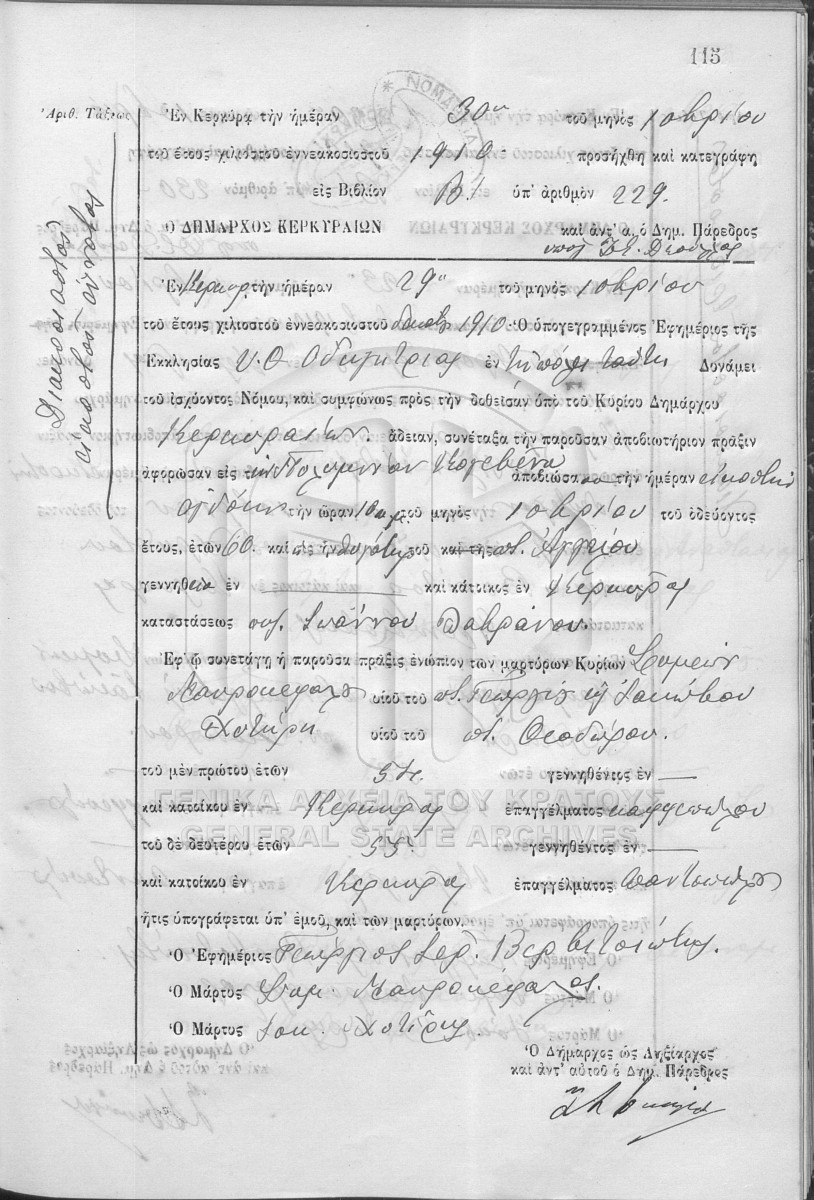 115
Ἀριθ. Τάξεως
Διακοσιοστοῦ
εἰκοστοῦ ἐννάτου
Ἐν Κερκύρᾳ τὴν ἡμέραν 30ην τοῦ μηνὸς 10βρίου
τοῦ ἔτους χιλιοστοῦ ἐννεακοσιοστοῦ 1910 προσήχθη καὶ κατεγράφη
εἰς Βιβλίον Β' ὑπ' ἀριθμὸν 229.
Ὁ ΔΗΜΑΡΧΟΣ ΚΕΡΚΥΡΑΙΩΝ καὶ ἀντ' α. ὁ Δημ. Πάρεδρος
Ἐν Κερκύρᾳ τὴν ἡμέραν 29ην τοῦ μηνὸς 10βρίου
τοῦ ἔτους χιλιοστοῦ ἐννεακοσιοστοῦ δεκάτου 1910 Ὁ ὑπογεγραμμένος Ἐφημέριος τῆς
Ἐκκλησίας Υ. Θ. Οδηγητρίας ἐν τῇ πόλει ταύτῃ Δυνάμει
τοῦ ἰσχύοντος Νόμου, καὶ συμφώνως πρὸς τὴν δοθεῖσάν ὑπὸ τοῦ Κυρίου Δημάρχου
Κερκυραίων. ἄδειαν, συνέταξα τὴν παροῦσαν ἀποβιωτήριον πρᾶξιν
ἀφορῶσαν εἰς τὴν Πολυμνίαν ἀποβιώσασαν τὴν ἡμέραν εἰκοστὴν
ὀγδόην τὴν ὥραν 10 π.μ. τοῦ μηνὸς 10βρίου τοῦ ὁδεύοντος
ἔτους, ἐτῶν 60. καὶ θυγάτηρ τοῦ καὶ τῆς π. Ἀγγέλου
γεννηθεῖσα ἐν καὶ κάτοικος ἐν Κέρκυρα
καταστάσεως συζ. Ἰωάννου
Ἐφ' ᾧ συνετάγη ἡ παροῦσα πρᾶξις ἐνώπιον τῶν μαρτύρων Κυρίων Συμεὼν
Μαυροκεφάλου υἱοῦ τοῦ π. Γεωργίου καὶ Ἰακώβου
Χυτήρη υἱοῦ τοῦ π. Θεοδώρου.
τοῦ μὲν πρώτου ἐτῶν γεννηθέντος ἐν —
καὶ κατοίκου ἐν Κέρκυρα ἐπαγγέλματος καφφεπώλου
τοῦ δὲ δευτέρου ἐτῶν 55. γεννηθέντος ἐν —
καὶ κατοίκου ἐν Κέρκυρα ἐπαγγέλματος παντοπώλου
ἥτις ὑπογράφεται ὑπ' ἐμοῦ, καὶ τῶν μαρτύρων.
Ὁ Ἐφημέριος Γεώργιος Ιερ. Βερβιτσιώτης.
Ὁ Μάρτυς Συμ. Μαυροκέφαλος.
Ὁ Μάρτυς Ιακ. Χυτήρης
Ὁ Δήμαρχος ὡς Ληξίαρχος
καὶ ἀντ' αὐτοῦ ὁ Δημ. Πάρεδρος
ΓΕΝΙΚΑ ΑΡΧΕΙΑ ΤΟΥ ΚΡΑΤΟΥΣ
GENERAL STATE ARCHIVES